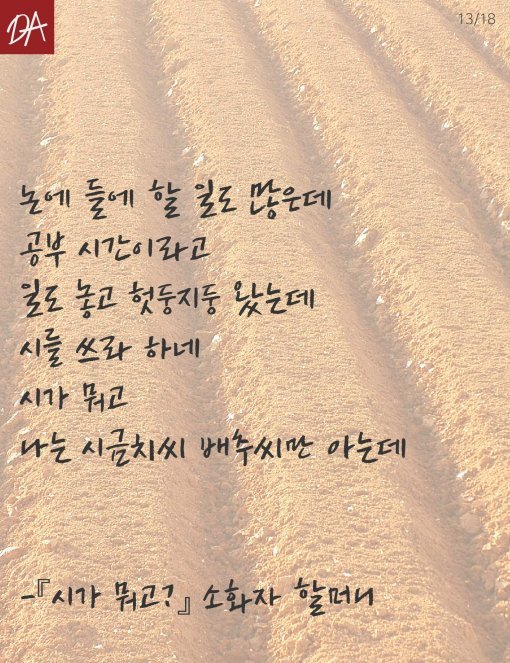 DA
13/18
논에 들에 할 일도 많은데
공부 시간이라고
일도 놓고 헛둥지둥 왔는데
시를 쓰라 하네
시가 뭐고
나는 시금치씨 배추씨만 아는데
-『시가 뭐고?』 소화자 할머니